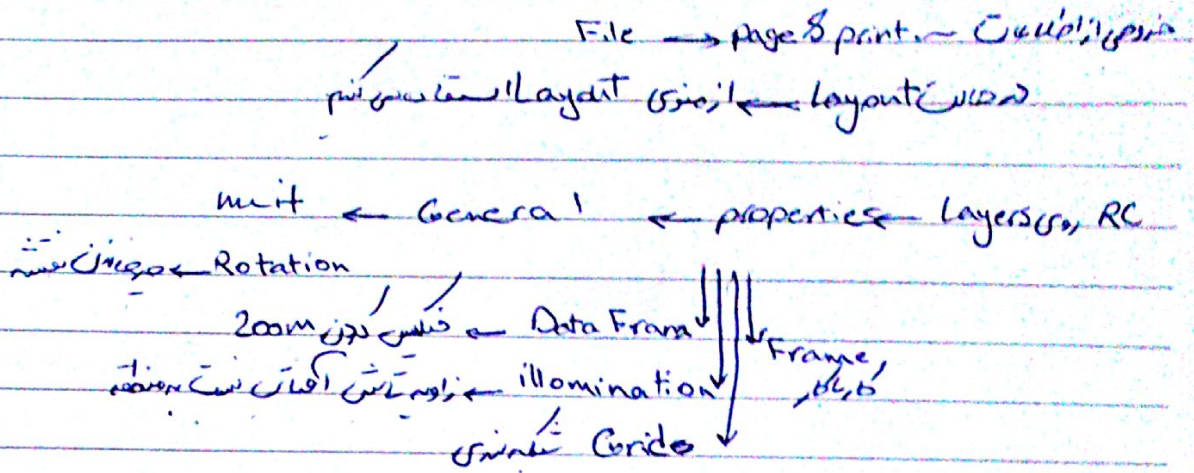 خروجی از اطلاعات ← File → page & print
در حالت Layout ← از منوی Layout استفاده می کنیم
RC روی Layers ← properties ← General ← unit
Rotation ← چرخاندن نقشه
Data Fram ← فیکس کردن 200m
Frame, کادر
illomination ← زاویه تابش آفتاب نسبت به منطقه
Grids شبکه بندی